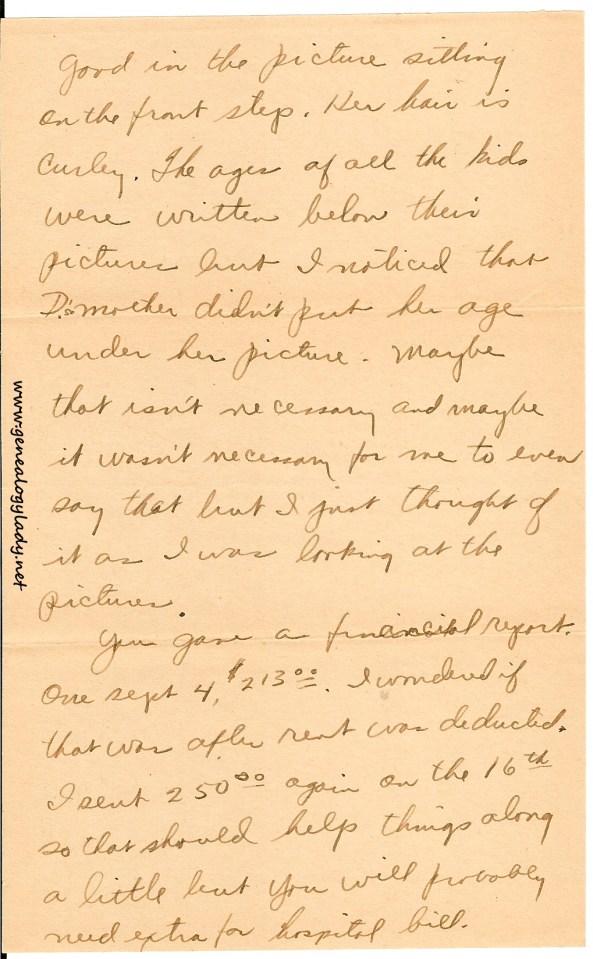 good in the picture sitting
on the front step. Her hair is
curley. The ages of all the kids
were written below their
pictures but I noticed that
D.'s mother didn't put her age
under her picture. Maybe
that isn't necessary and maybe
it wasn't necessary for me to even
say that but I just thought of
it as I was looking at the
pictures.
You gave a financial report.
One sept 4, $213.00. I wondered if
that was after rent was deducted.
I sent 250.00 again on the 16th
so that should help things along
a little but you will probably
need extra for hospital bill.
www.genealogylady.net